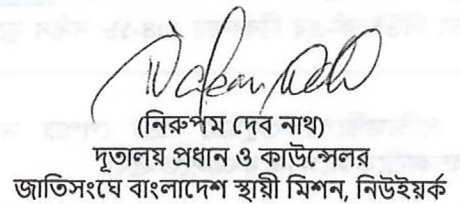 (নিরুপম দেব নাথ)
দূতালয় প্রধান ও কাউন্সেলর
জাতিসংঘে বাংলাদেশ স্থায়ী মিশন, নিউইয়র্ক